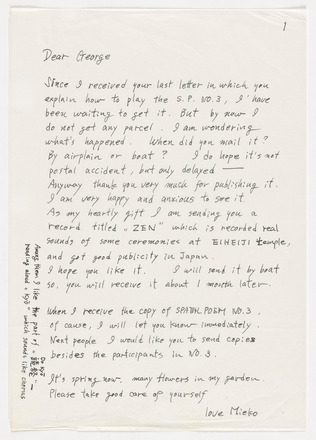 1
Dear George
Since I received your last letter in which you
explain how to play the S.P. NO.3, I'have
been waiting to get it. But by now I
do not get any parcel. I am wondering
what's happened. When did you mail it?
By airplain or boat? I do hope it's not
postal accident, but only delayed —
Anyway thank you very much for publishing it.
I am very happy and anxious to see it.
As my heartly gift I am sending you a
record titled „ZEN" which is recorded real
sounds of some ceremonies at EIHEIJI temple,
and got good publicity in Japan.
I hope you like it. I will send it by boat
so, you will receive it about 1 month later.
Among them I like the part of „読経"—
Do Kyō
reading aloud „Kyō" which sounds like chorus
When I receive the copy of SPATIAL POEM NO.3,
of cause, I will let you know immediately.
Next people I would like you to send copies
besides the participants in NO.3.
It's spring now, many flowers in my garden.
Please take good care of yourself
love Mieko